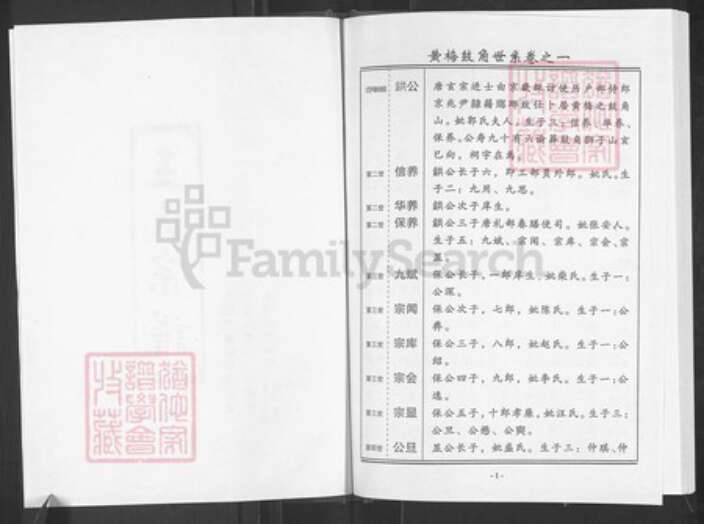 黄梅鼓角世系卷之一
鉷公
唐玄宗进士
京兆尹
山。妣郭氏夫人。生子三：信养、华养、
保养。公寿九十有六
巳向，祠宇在焉。
第二世 信养 鉷公长子六，即工部员外郎。妣氏。生
子二：九周、九思。
第二世 华养 鉷公次子庠生。
第二世 保养 鉷公三子唐礼部春膳使司。妣张安人。
生子五：九斌、宗闻、宗库、宗会、宗
显。
第三世 九斌 保公长子，一郎庠生、妣柴氏。生子一：
公深。
第三世 宗闻 保公次子，七郎，妣陈氏。生子一：公
彝。
第三世 宗库 保公三子，八郎，妣赵氏。生子一：公
绍。
第三世 宗会 保公四子，九郎，妣李氏。生子一：公
逸。
第三世 宗显 保公五子，十郎孝廉，妣汪氏。生子三：
公旦、公懋、公奭。
第四世 公旦 显公长子，妣盛氏。生子三：仲琪、仲
-1-
FamilySearch